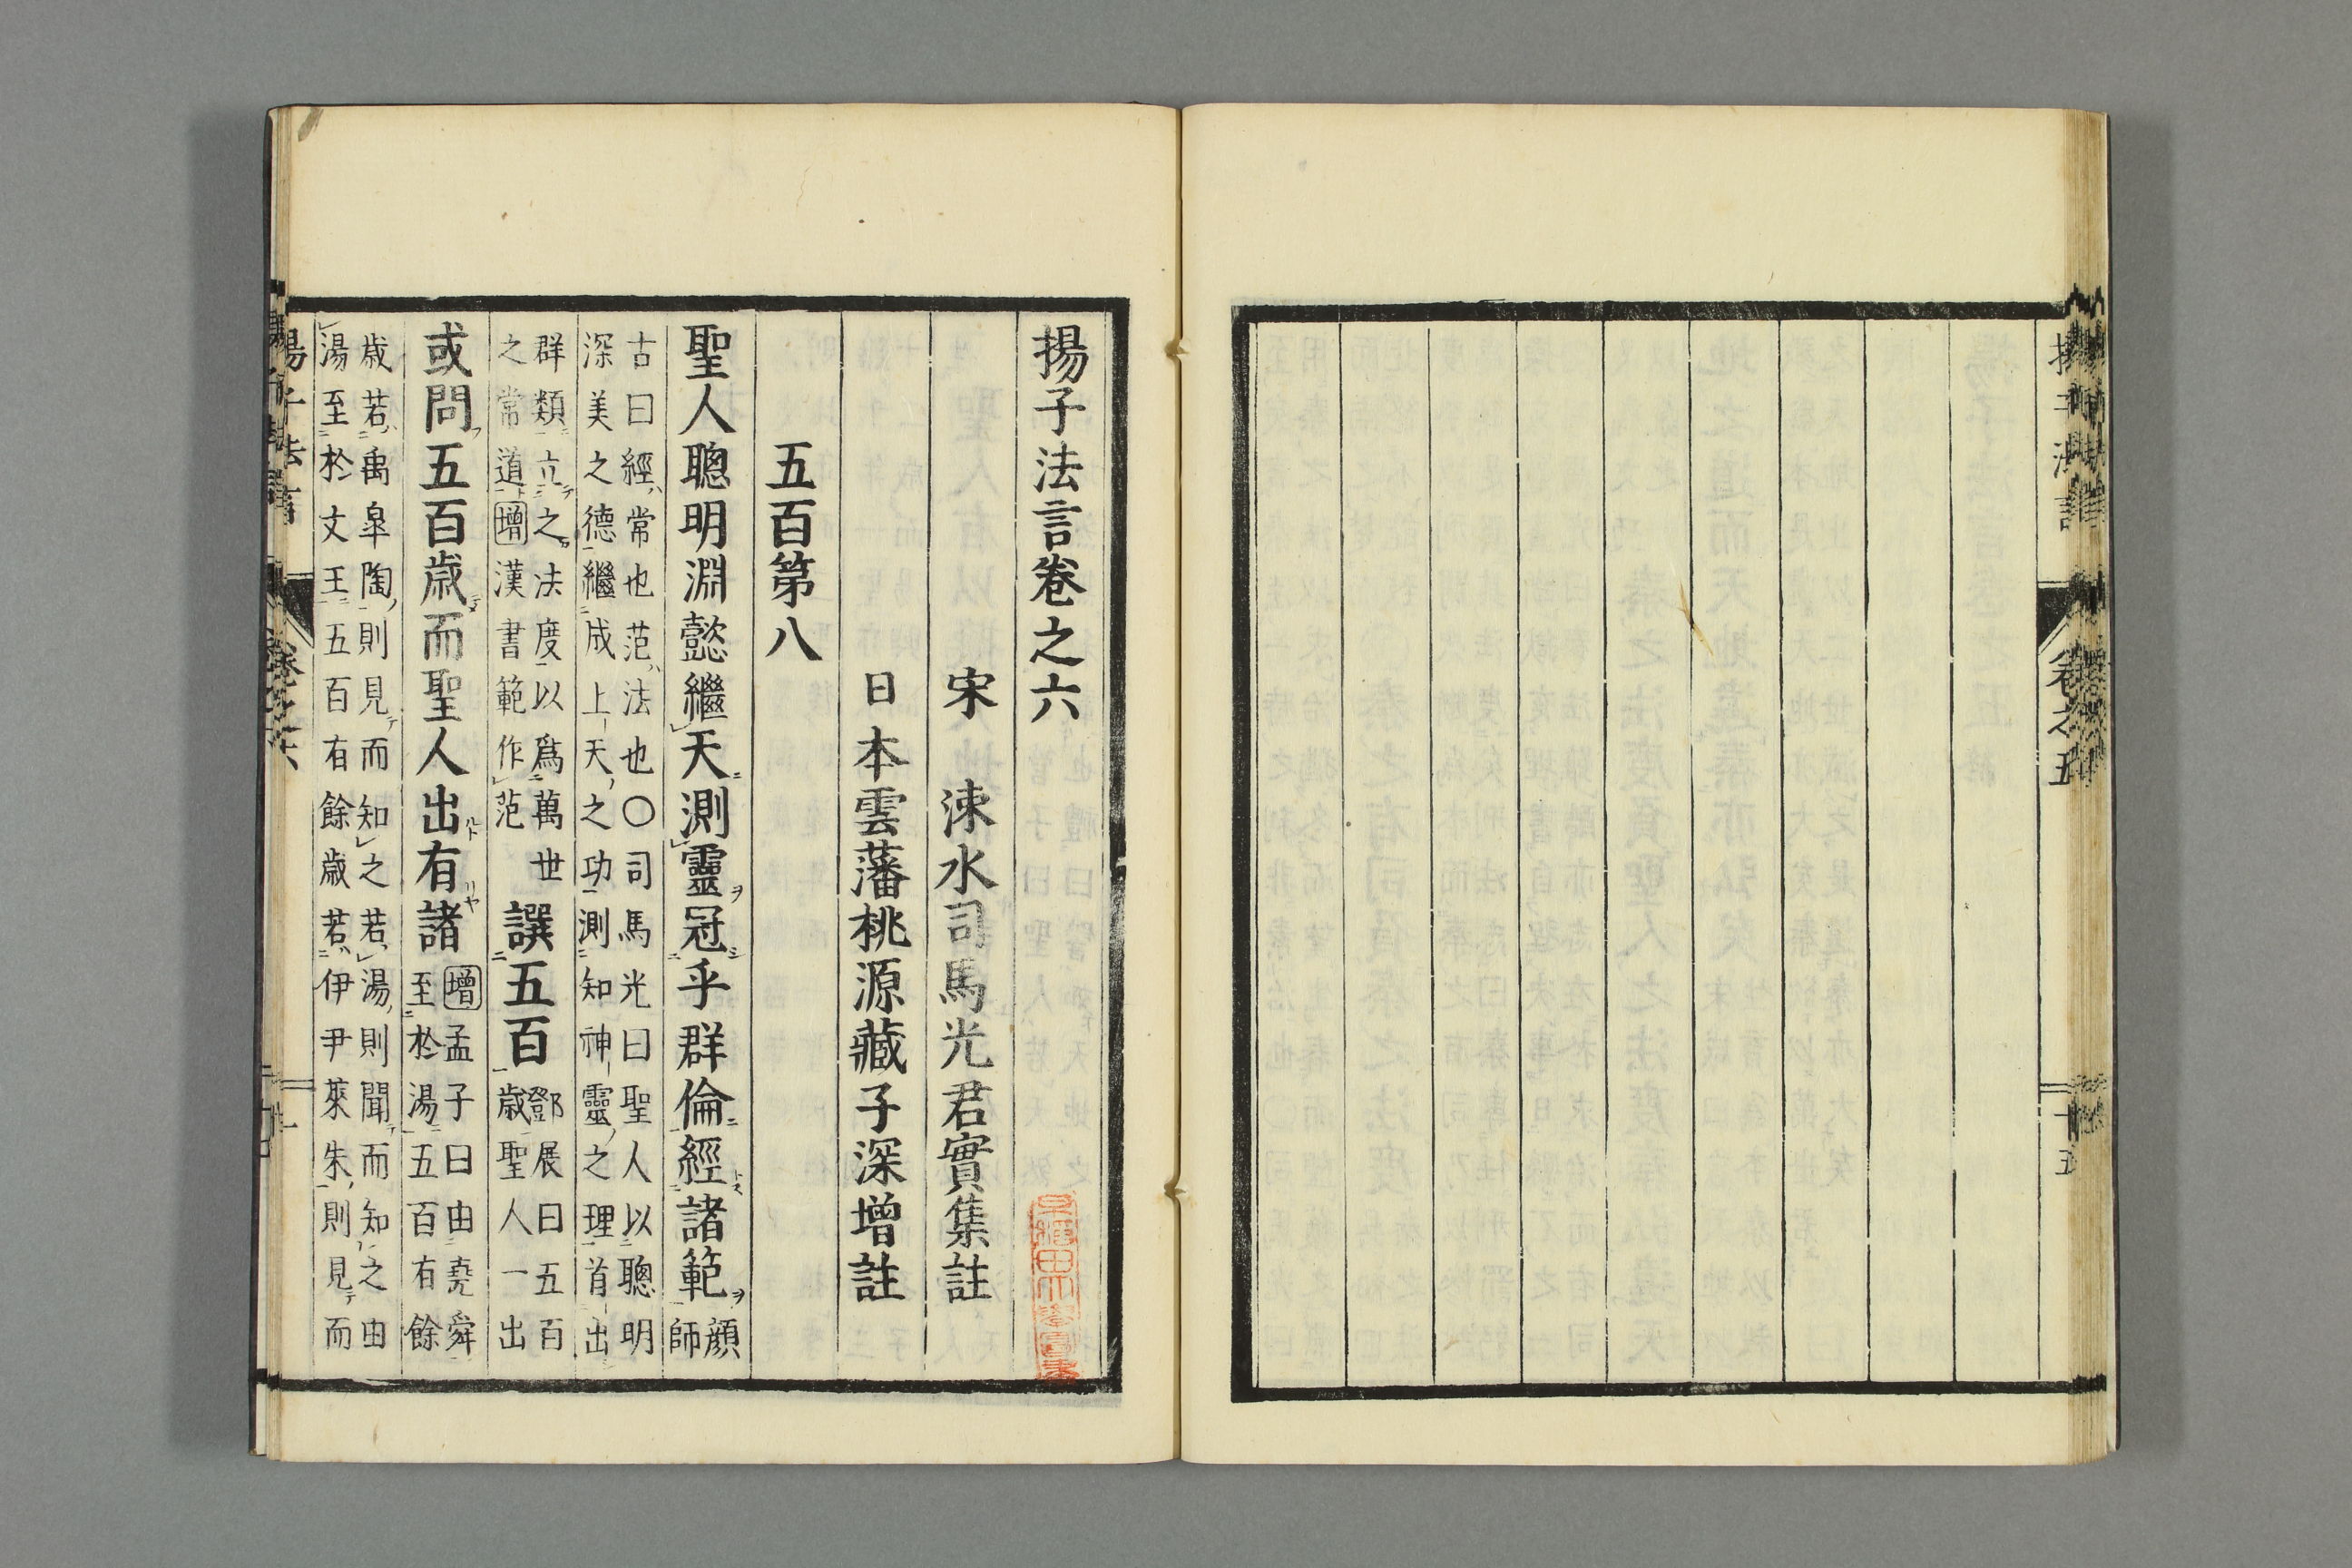 揚子法言卷之六
宋 涑水司馬光君實集註
日本雲藩桃源藏子深增註
五百第八
聖人聰明淵懿繼天測靈冠乎群倫經諸範顏師
古曰經常也范法也〇司馬光曰聖人以聰明
深美之德繼成上天之功測知神靈之理首出
群類立之法度以為萬世
之常道增漢書範作范
譔五百
鄧展曰五百
歲聖人一出
或問五百歲而聖人出有諸
增孟子曰由堯舜
至於湯五百有餘
歲若禹皐陶則見而知之若湯則聞而知之由
湯至於文王五百有餘歲若伊尹萊朱則見而
卷之五
十五